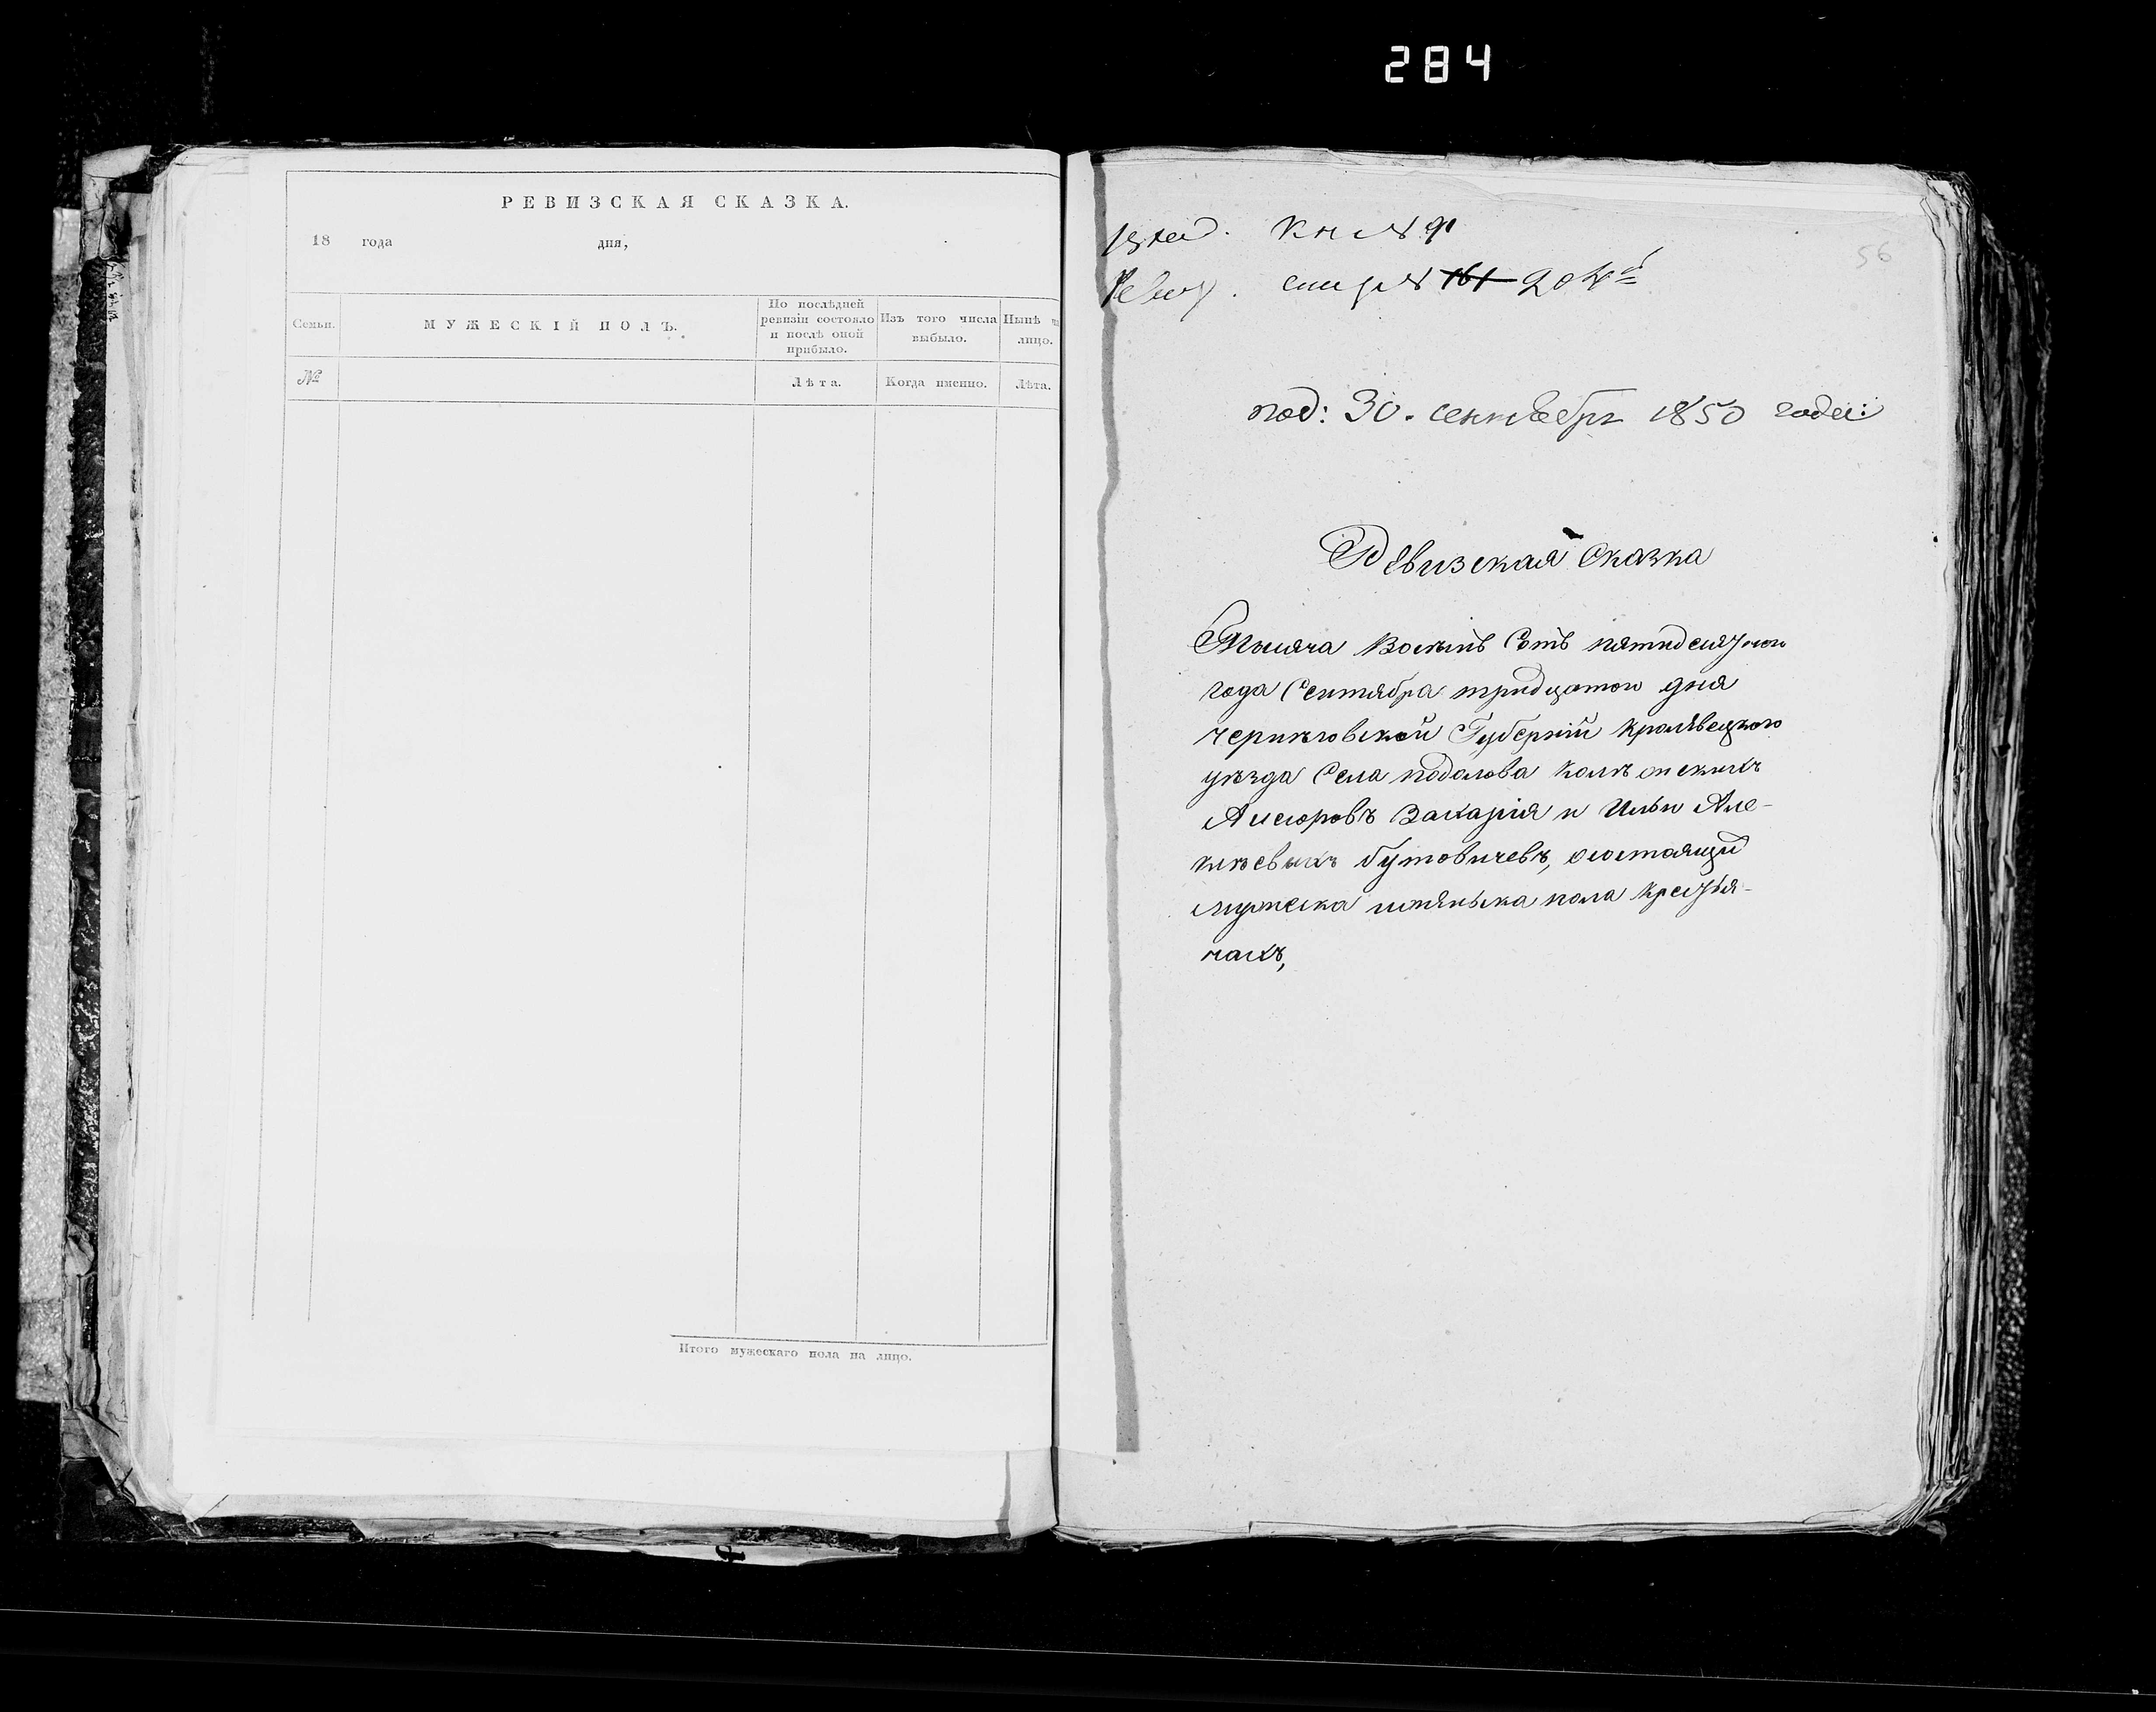 284
РЕВИЗСКАЯ СКАЗКА.
18 года дня,
Семьи.
МУЖЕСКІЙ ПОЛЪ.
По послѣдней
ревизіи состояло
и послѣ оной
прибыло.
Изъ того числа
выбыло.
Нынѣ
лицо.
№
Лѣта.
Когда именно.
Лѣта.
Итого мужескаго пола на лицо.
56
кн № 91
№ 161
под: 30. сентября 1850 года:
Ревизская Сказка
Тысяча Восемь Сотъ пятидесятого
года Сентября тридцатого дня
черниговской Губерніи кролѣвецкого
уѣзда Села подолова
Асесоровъ Захарія и Ильи Але-
кѣевыхъ бутовичевъ, о состоящи
мужеска и женьска пола кресья-
нахъ,